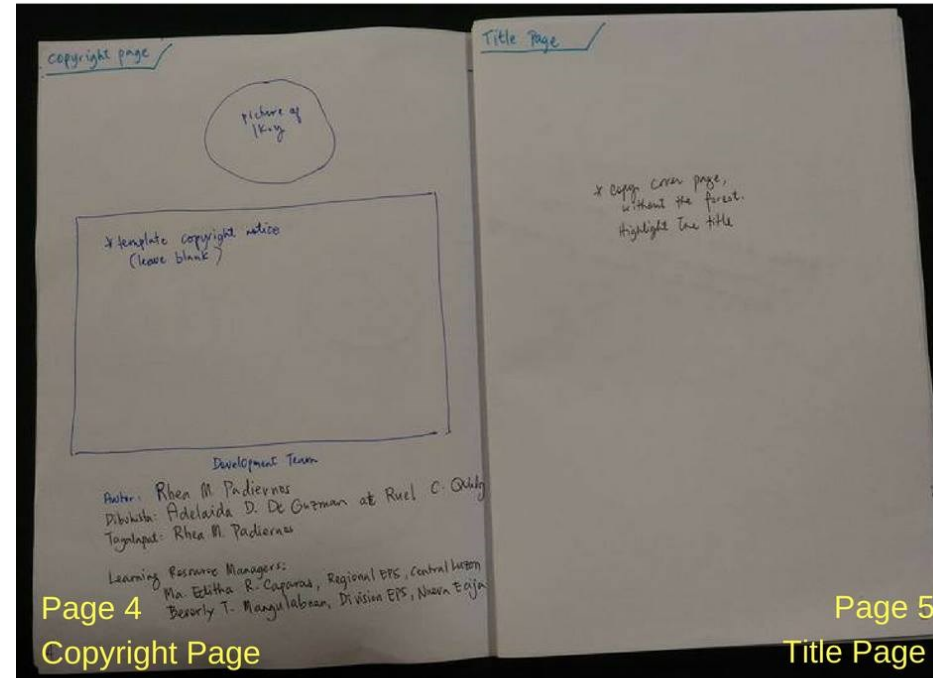 Copyright page
picture of
* template copyright notice
(leave blank)
Development Team
Awtor: Rhea M. Padiernos
Dibuhista: Adelaida D. De Guzman at Ruel C.
Taga
Rhea M. Padiernos
Learning Resource Managers:
Ma. Editha R. Caparas, Regional EPS, Central Luzon
Beverly T. Mangulabnan, Division EPS, Nueva Ecija
Page 4
Copyright Page
Title Page
* Copy cover page,
without the forest.
Highlight the title
Page 5
Title Page